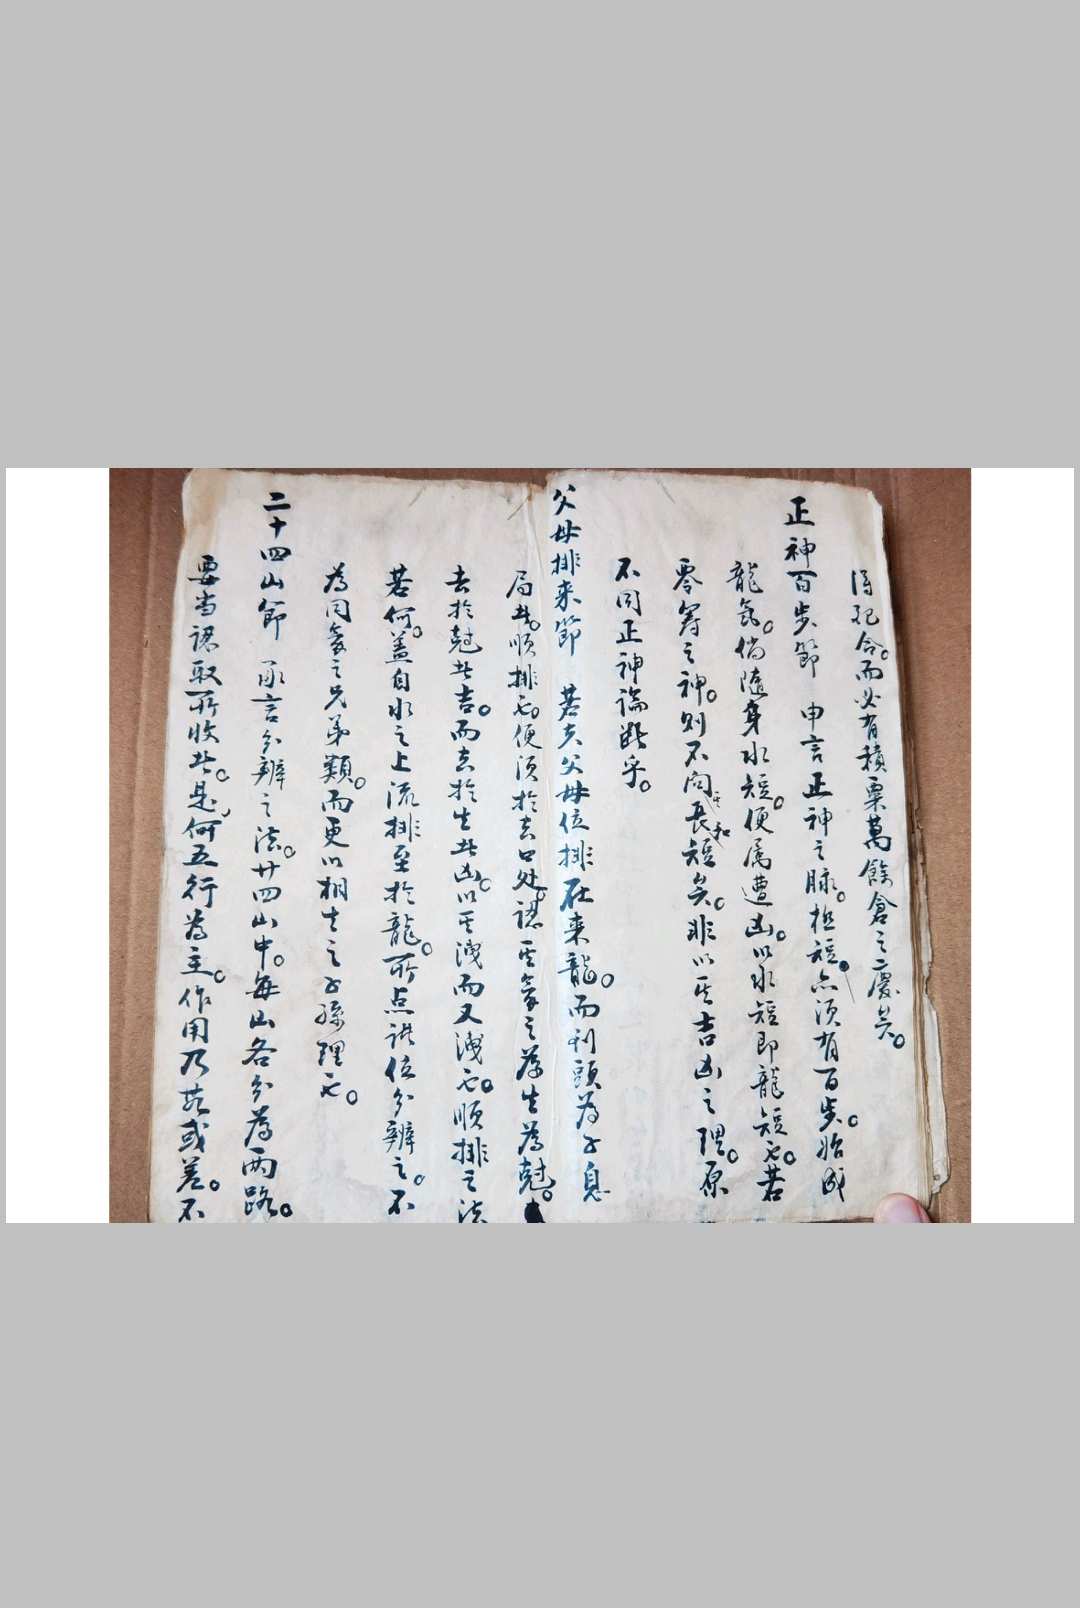 得配合。而必有積粟萬餘倉之慶矣。
正神百步節　申言正神之脉。極短。亦須有百步。始成
龍氣。倘隨身水短。便属遭凶。以水短即龍短也。若
零筭之神。則不问其長和短矣。非以其吉凶之理。原
不同正神論断乎。
父母排来節　若夫父母位排在来龍。而到頭為子息
局者。順排也。便須於去口处。認其家之為生為尅。
去於尅者吉。而去於生者凶。以其洩而又洩也。順排之法
若何。盖自水之上流排至於龍。所点諸位分辨之。不
為同家之兄弟類。而更以相生之子孫理也。
二十四山節　承言分辨之法。廿四山中。每山各分為两路。
要当認取所收者。是何五行為主。作用乃不或差。不